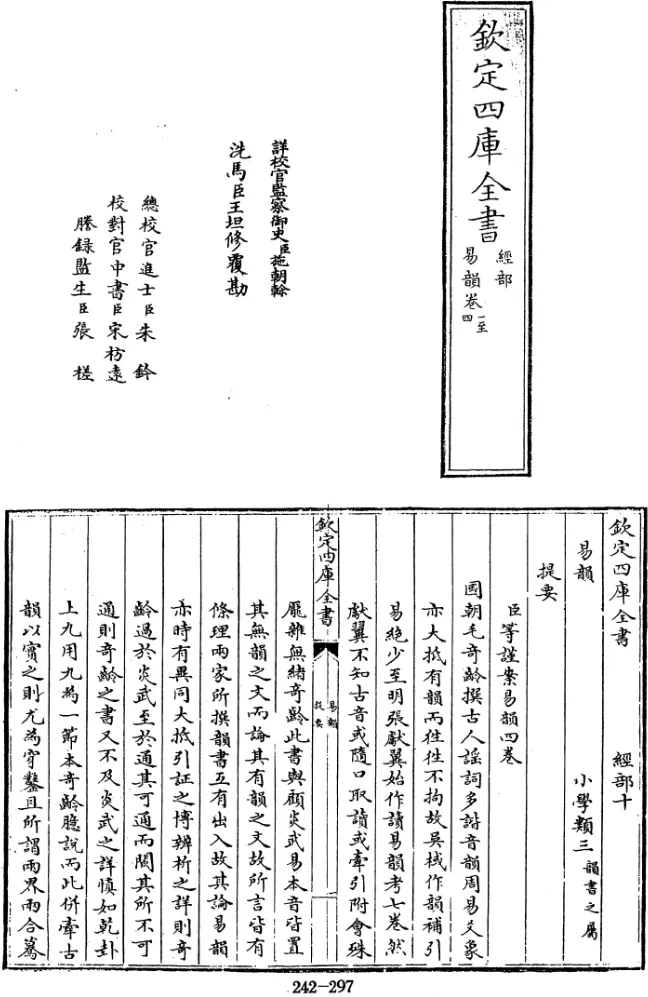 欽定四庫全書
經部
易韻卷一至四
詳校官監察御史臣施朝榦
洗馬臣王坦修覆勘
總校官進士臣朱鈐
校對官中書臣宋枋遠
謄録監生臣張槎
欽定四庫全書
經部十
易韻
小學類三韻書之屬
提要
臣等謹案易韻四卷
國朝毛奇齡撰古人謡詞多諧音韻周易爻象
亦大抵有韻而往往不拘故吳棫作韻補引
易絶少至明張獻翼始作讀易韻考七卷然
獻翼不知古音或隨口取讀或牽引附會殊
欽定四庫全書
易韻
提要
龎雜無緒奇齡此書與顧炎武易本音皆置
其無韻之文而論其有韻之文故所言皆有
條理兩家所撰韻書互有出入故其論易韻
亦時有異同大抵引証之博辨析之詳則奇
齡過於炎武至於通其可通而闕其所不可
通則奇齡之書又不及炎武之詳慎如乾卦
上九用九為一節本奇齡臆説而此併牽古
韻以實之則尤為穿鑿且所謂兩界兩合驀
242-297